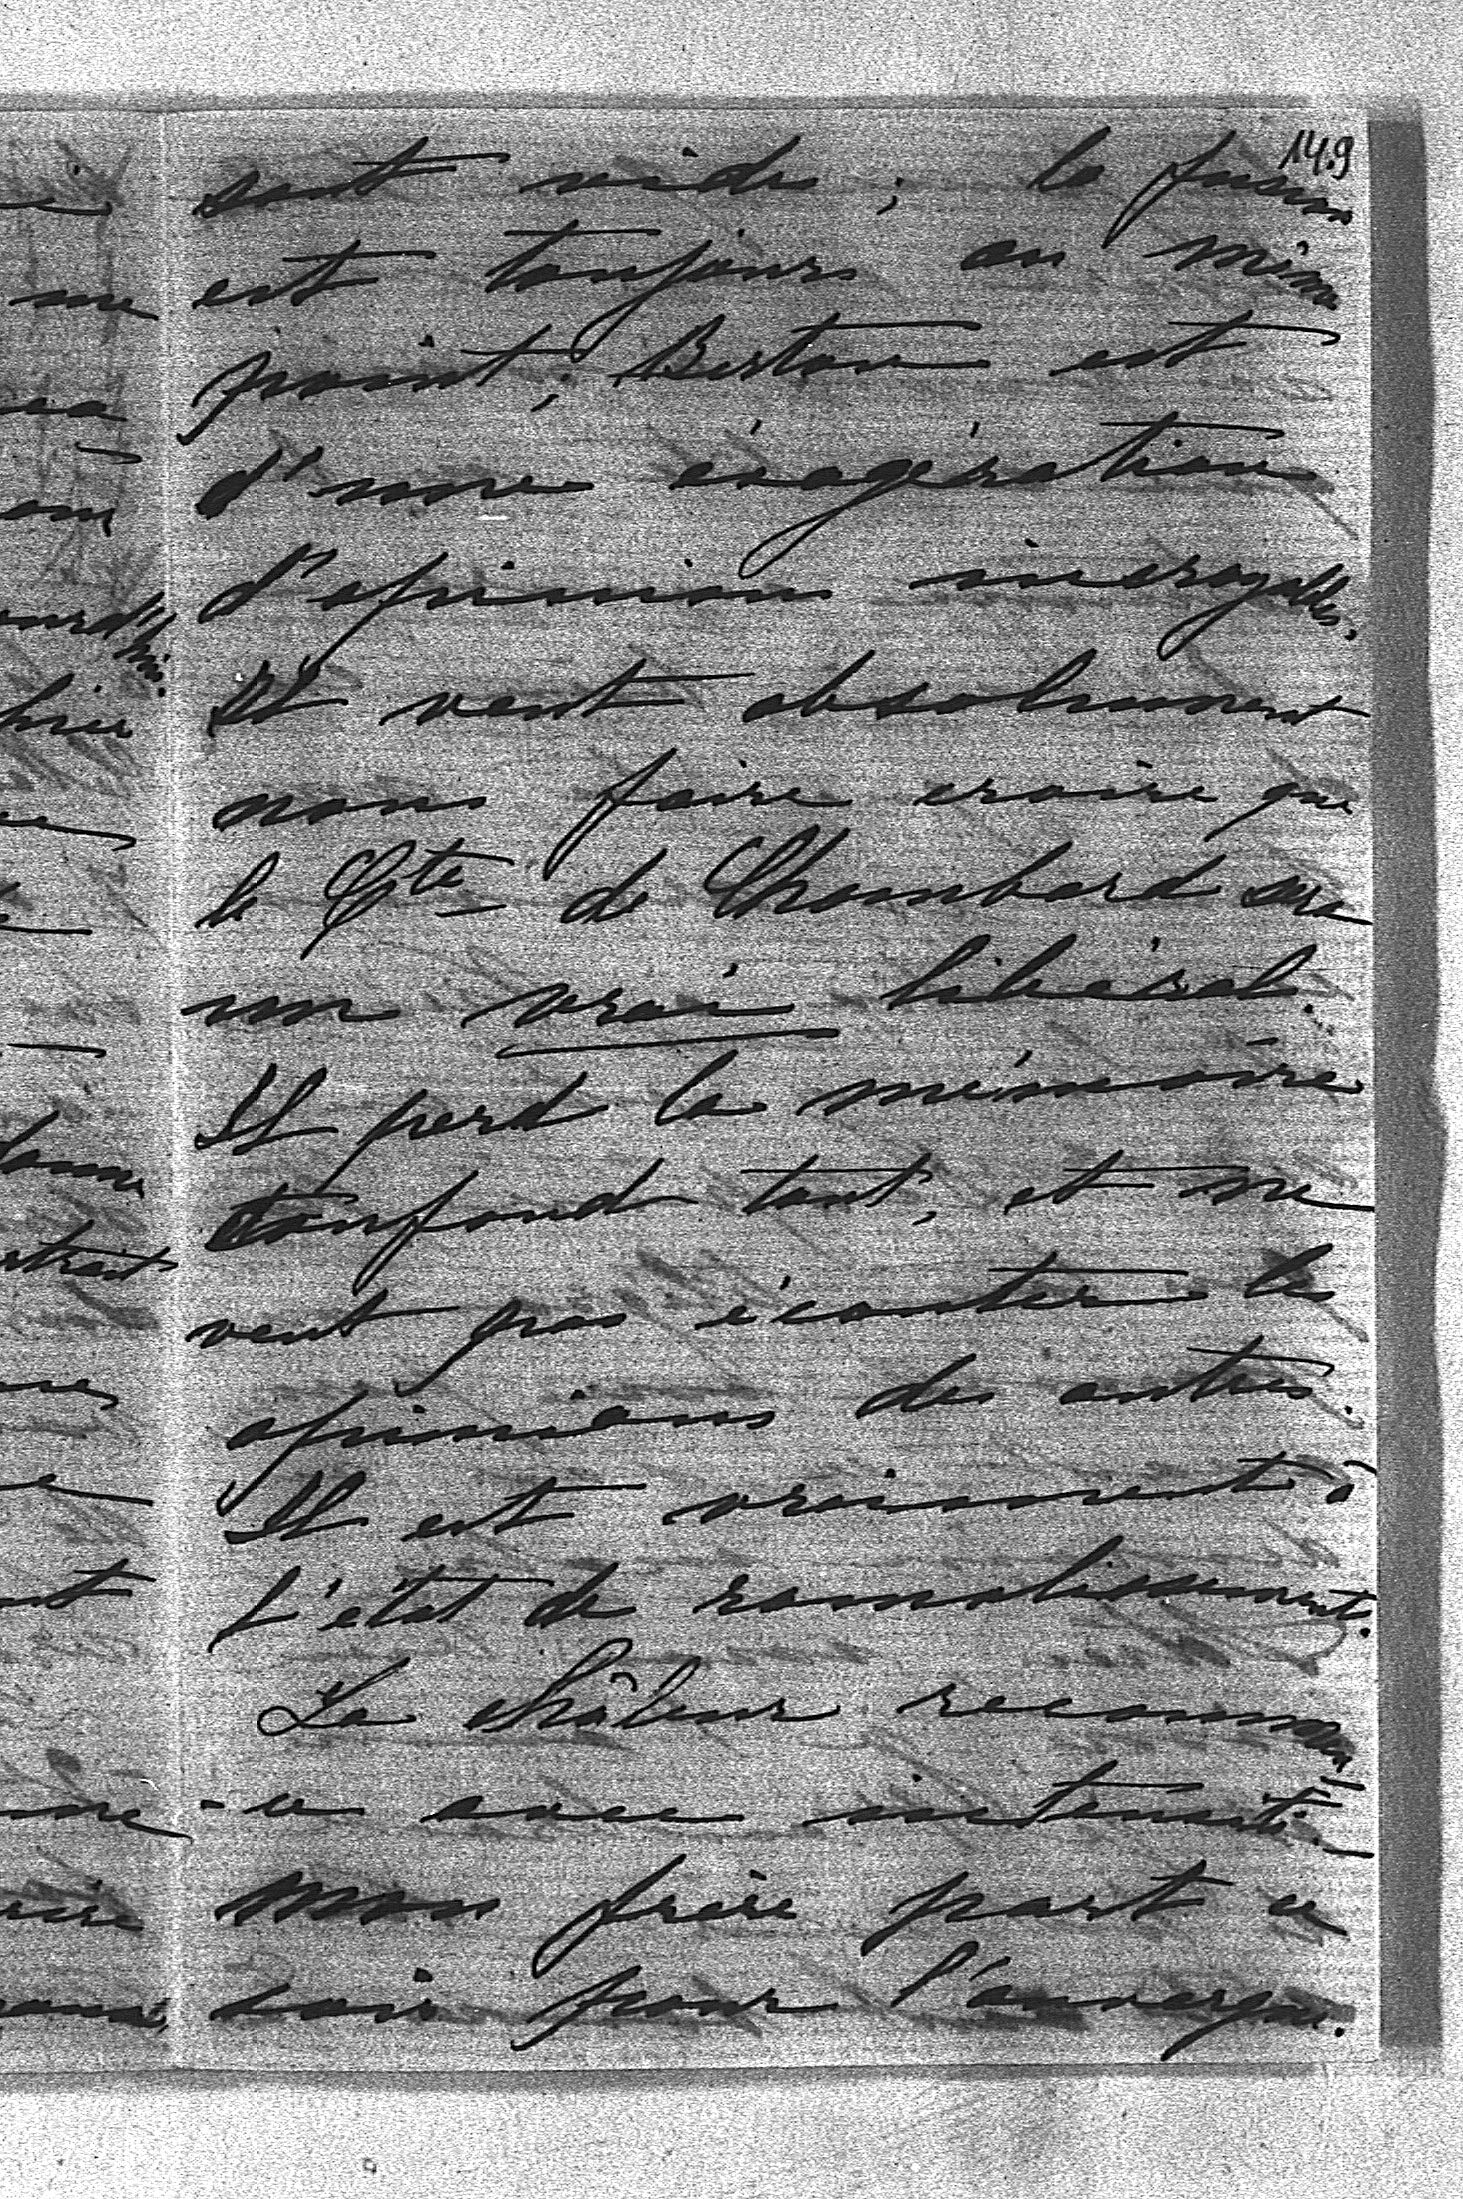 149
sont vides ; la fusion
est toujours au même
point ; Bertou est
d'une éxagération
d'opinions incroyables.
Il veut absolument
nous faire croire que
le Cte de Chambord sera
un vrai libéral.
Il perd la mémoire
confond tout, et ne
veut pas écouter les
opinions des autres.
Il est vraiment à
l'état de ramolissement.
La châleur recommen
-ce avec intensité.
Mon frère part ce
soir pour l'auvergne.